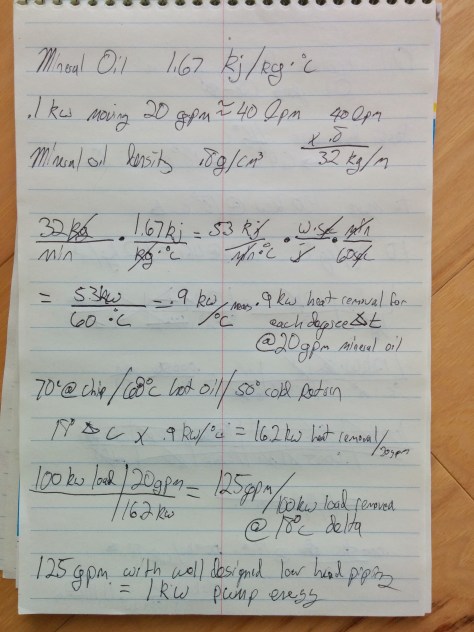 Mineral Oil 1.67 kj/kg·°c
.1 kw moving 20 gpm ≈ 40 lpm 40 lpm
x .8
Mineral oil density .8g/cm³ 32 kg/m
32 kg/min · 1.67 kj/kg·°c = 53 kj/min·°c · w·sec/j · min/60sec
= 53kw/60 °c = .9 kw/°c means .9 kw heat removal for
each degree Δt
@20gpm mineral oil
70°@chip/68°c hot oil/50° cold return
18° Δ c x .9 kw/°c = 16.2 kw heat removal/20gpm
100 kw load | 20gpm/16.2 kw = 125 gpm/100kw load removed
@ 18°c delta
125 gpm with well designed low head piping
= 1 kw pump energy